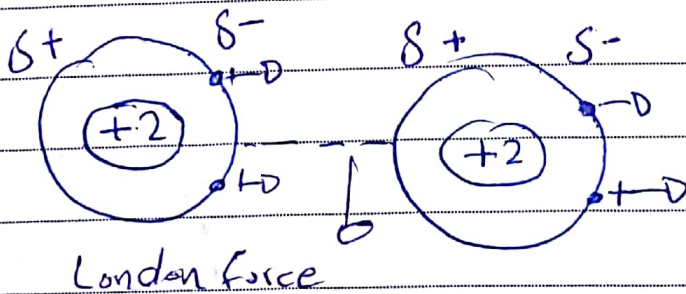 δ+ δ- δ+ δ-
+2 +2
London force